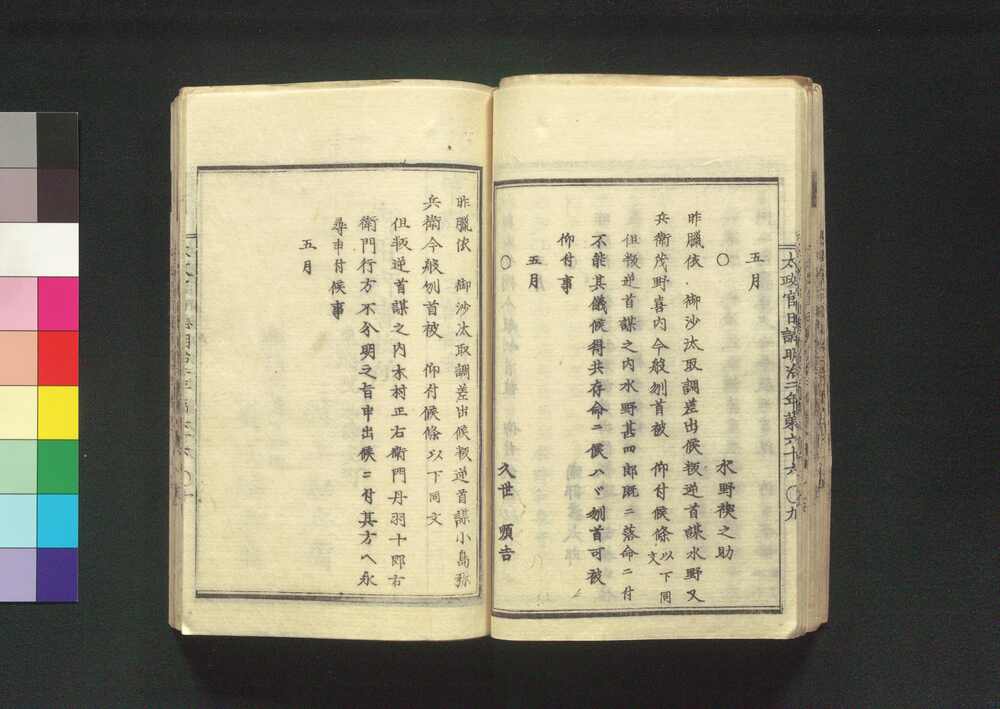 太政官日誌明治二年第六十六 〇九
五月
〇 水野稧之助
昨臘依 御沙汰取調差出候叛逆首謀水野又
兵衛茂野喜内今般刎首被 仰付候條以下同文
但叛逆首謀之内水野甚四郎既ニ落命ニ付
不能其儀候得共存命ニ候ハヾ刎首可被
仰付事
五月
〇 久世 順吉
昨臘依 御沙汰取調差出候叛逆首謀小島弥
兵衛今般刎首被 仰付候條以下同文
但叛逆首謀之内木村正右衛門丹羽十郎右
衛門行方不分明之旨申出候ニ付其方ヘ永
尋申付候事
五月